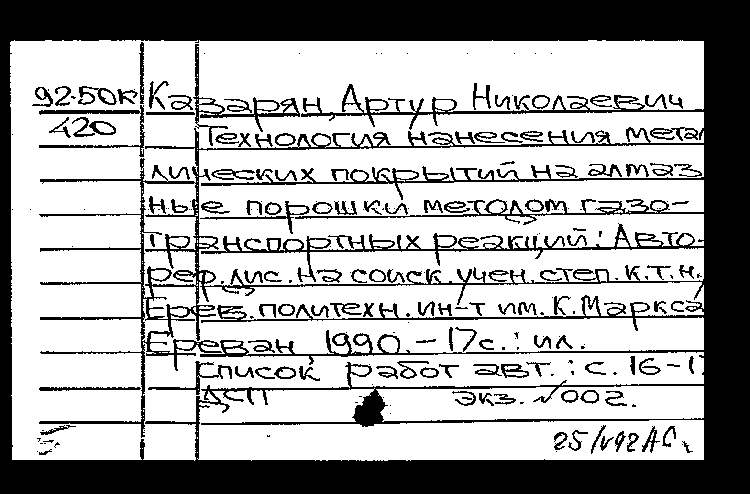 92-50к Казарян, Артур Николаевич
420 Технология нанесения метал
лических покрытий на алмаз
ные порошки методом газо-
транспортных реакций: Авто-
реф. дис. на соиск. учен. степ. к.т.н.
Ерев. политехн. ин-т им. К. Маркса
Ереван, 1990. - 17с.: ил.
Список работ авт.: с. 16-17
ДСП экз. №002.